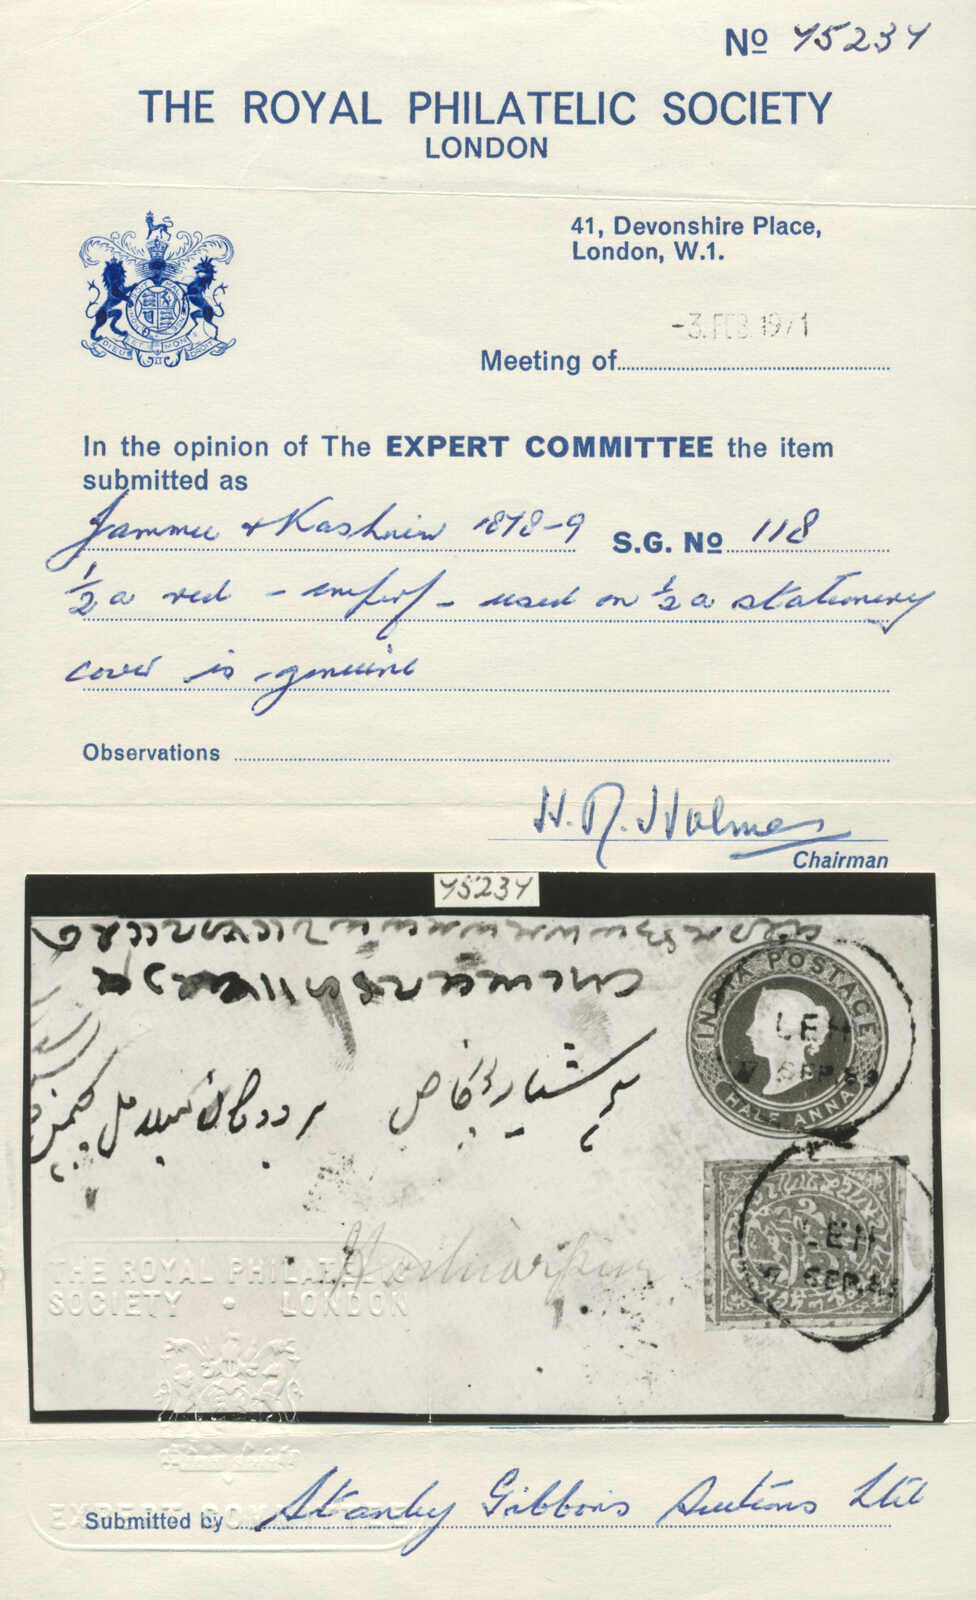 Nº 75237
THE ROYAL PHILATELIC SOCIETY
LONDON
41, Devonshire Place,
London, W.1.
-3. FEB. 1971
Meeting of
In the opinion of The EXPERT COMMITTEE the item
submitted as
Jammu & Kashmir 1878-9 S.G. Nº 118
½a red - imperf - used on ½a stationery
cover is genuine
Observations
H. R. Holmes
Chairman
75237
INDIA POSTAGE
HALF ANNA
LEH
SEP
LEH
SEP
Hoshiarpur
THE ROYAL PHILATELIC
SOCIETY • LONDON
EXPERT COMMITTEE
Submitted by Stanley Gibbons Auctions Ltd